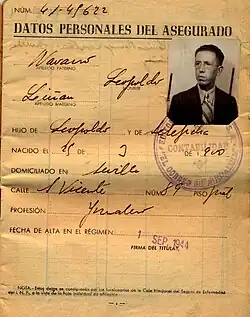 NÚM. 41-45622
DATOS PERSONALES DEL ASEGURADO
Navarro
APELLIDO PATERNO
Leopoldo
NOMBRE
Liñan
APELLIDO MATERNO
HIJO DE Leopoldo Y DE
NACIDO EL 15 DE 3 DE
DOMICILIADO EN Sevilla
CALLE S. Vicente NÚM 59 PISO
PROFESIÓN
FECHA DE ALTA EN EL RÉGIMEN:
1 SEP. 1944
FIRMA DEL TITULAR,
CONTABILIDAD
NOTA.-Estos datos se consignarán por los funcionarios de la Caja Nacional del Seguro de Enfermedad
del I. N. P. a la vista de la hoja individual de afiliación.